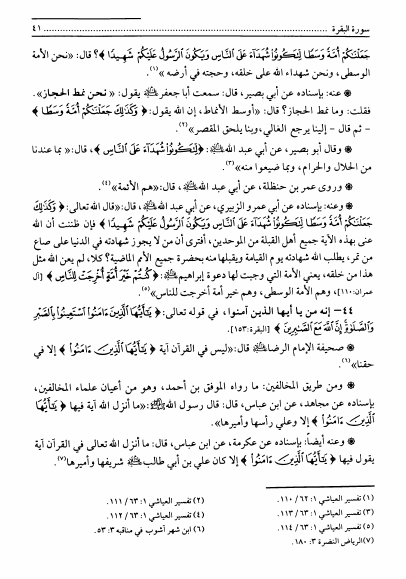 سورة البقرة ٤١
جَعَلْنَاكُمْ أُمَّةً وَسَطًا لِتَكُونُوا شُهَدَاءَ عَلَى النَّاسِ وَيَكُونَ الرَّسُولُ عَلَيْكُمْ شَهِيدًا﴾؟ قال: «نحن الأمة
الوسطى، ونحن شهداء الله على خلقه، وحجته في أرضه»(١).
❁ عنه: بإسناده عن أبي بصير، قال: سمعت أبا جعفر يقول: «نحن نمط الحجاز».
فقلت: وما نمط الحجاز؟ قال: «أوسط الأنماط، إن الله يقول: ﴿وَكَذَلِكَ جَعَلْنَاكُمْ أُمَّةً وَسَطًا﴾
- ثم قال - إلينا يرجع الغالي، وبنا يلحق المقصر»(٢).
❁ وقال أبو بصير، عن أبي عبد الله: ﴿لِتَكُونُوا شُهَدَاءَ عَلَى النَّاسِ﴾، قال: «بما عندنا
من الحلال والحرام، وبما ضيعوا منه»(٣).
❁ وروى عمر بن حنظلة، عن أبي عبد الله، قال: «هم الأئمة»(٤).
❁ وعنه: بإسناده عن أبي عمرو الزبيري، عن أبي عبد الله، قال: «قال الله تعالى: ﴿وَكَذَلِكَ
جَعَلْنَاكُمْ أُمَّةً وَسَطًا لِتَكُونُوا شُهَدَاءَ عَلَى النَّاسِ وَيَكُونَ الرَّسُولُ عَلَيْكُمْ شَهِيدًا﴾ فإن ظننت أن الله
عنى بهذه الآية جميع أهل القبلة من الموحدين، أفترى أن من لا يجوز شهادته في الدنيا على صاع
من تمر، يطلب الله شهادته يوم القيامة ويقبلها منه بحضرة جميع الأمم الماضية؟ كلا، لم يعن الله مثل
هذا من خلقه، يعني الأمة التي وجبت لها دعوة إبراهيم: ﴿كُنْتُمْ خَيْرَ أُمَّةٍ أُخْرِجَتْ لِلنَّاسِ﴾ [آل
عمران: ١١٠]، وهم الأمة الوسطى، وهم خير أمة أخرجت للناس»(٥).
٤٤- إنه من يا أيها الذين آمنوا، في قوله تعالى: ﴿يَا أَيُّهَا الَّذِينَ آمَنُوا اسْتَعِينُوا بِالصَّبْرِ
وَالصَّلَاةِ إِنَّ اللَّهَ مَعَ الصَّابِرِينَ﴾ [البقرة: ١٥٣].
❁ صحيفة الإمام الرضا قال: «ليس في القرآن آية ﴿يَا أَيُّهَا الَّذِينَ آمَنُوا﴾ إلا في
حقنا»(٦).
❁ ومن طريق المخالفين: ما رواه الموفق بن أحمد، وهو من أعيان علماء المخالفين،
بإسناده عن مجاهد، عن ابن عباس، قال: قال رسول الله: «ما أنزل الله آية فيها ﴿يَا أَيُّهَا
الَّذِينَ آمَنُوا﴾ إلا وعلي رأسها وأميرها».
❁ وعنه أيضاً: بإسناده عن عكرمة، عن ابن عباس، قال: ما أنزل الله تعالى في القرآن آية
يقول فيها ﴿يَا أَيُّهَا الَّذِينَ آمَنُوا﴾ إلا كان علي بن أبي طالب شريفها وأميرها(٧).
(١) تفسير العياشي ١: ٦٢/ ١١٠. (٢) تفسير العياشي ١: ٦٣/ ١١١.
(٣) تفسير العياشي ١: ٦٣/ ١١٣. (٤) تفسير العياشي ١: ٦٣/ ١١٢.
(٥) تفسير العياشي ١: ٦٣/ ١١٤. (٦) ابن شهر آشوب في مناقبه ٣: ٥٣.
(٧) الرياض النضرة ٣: ١٨٠.